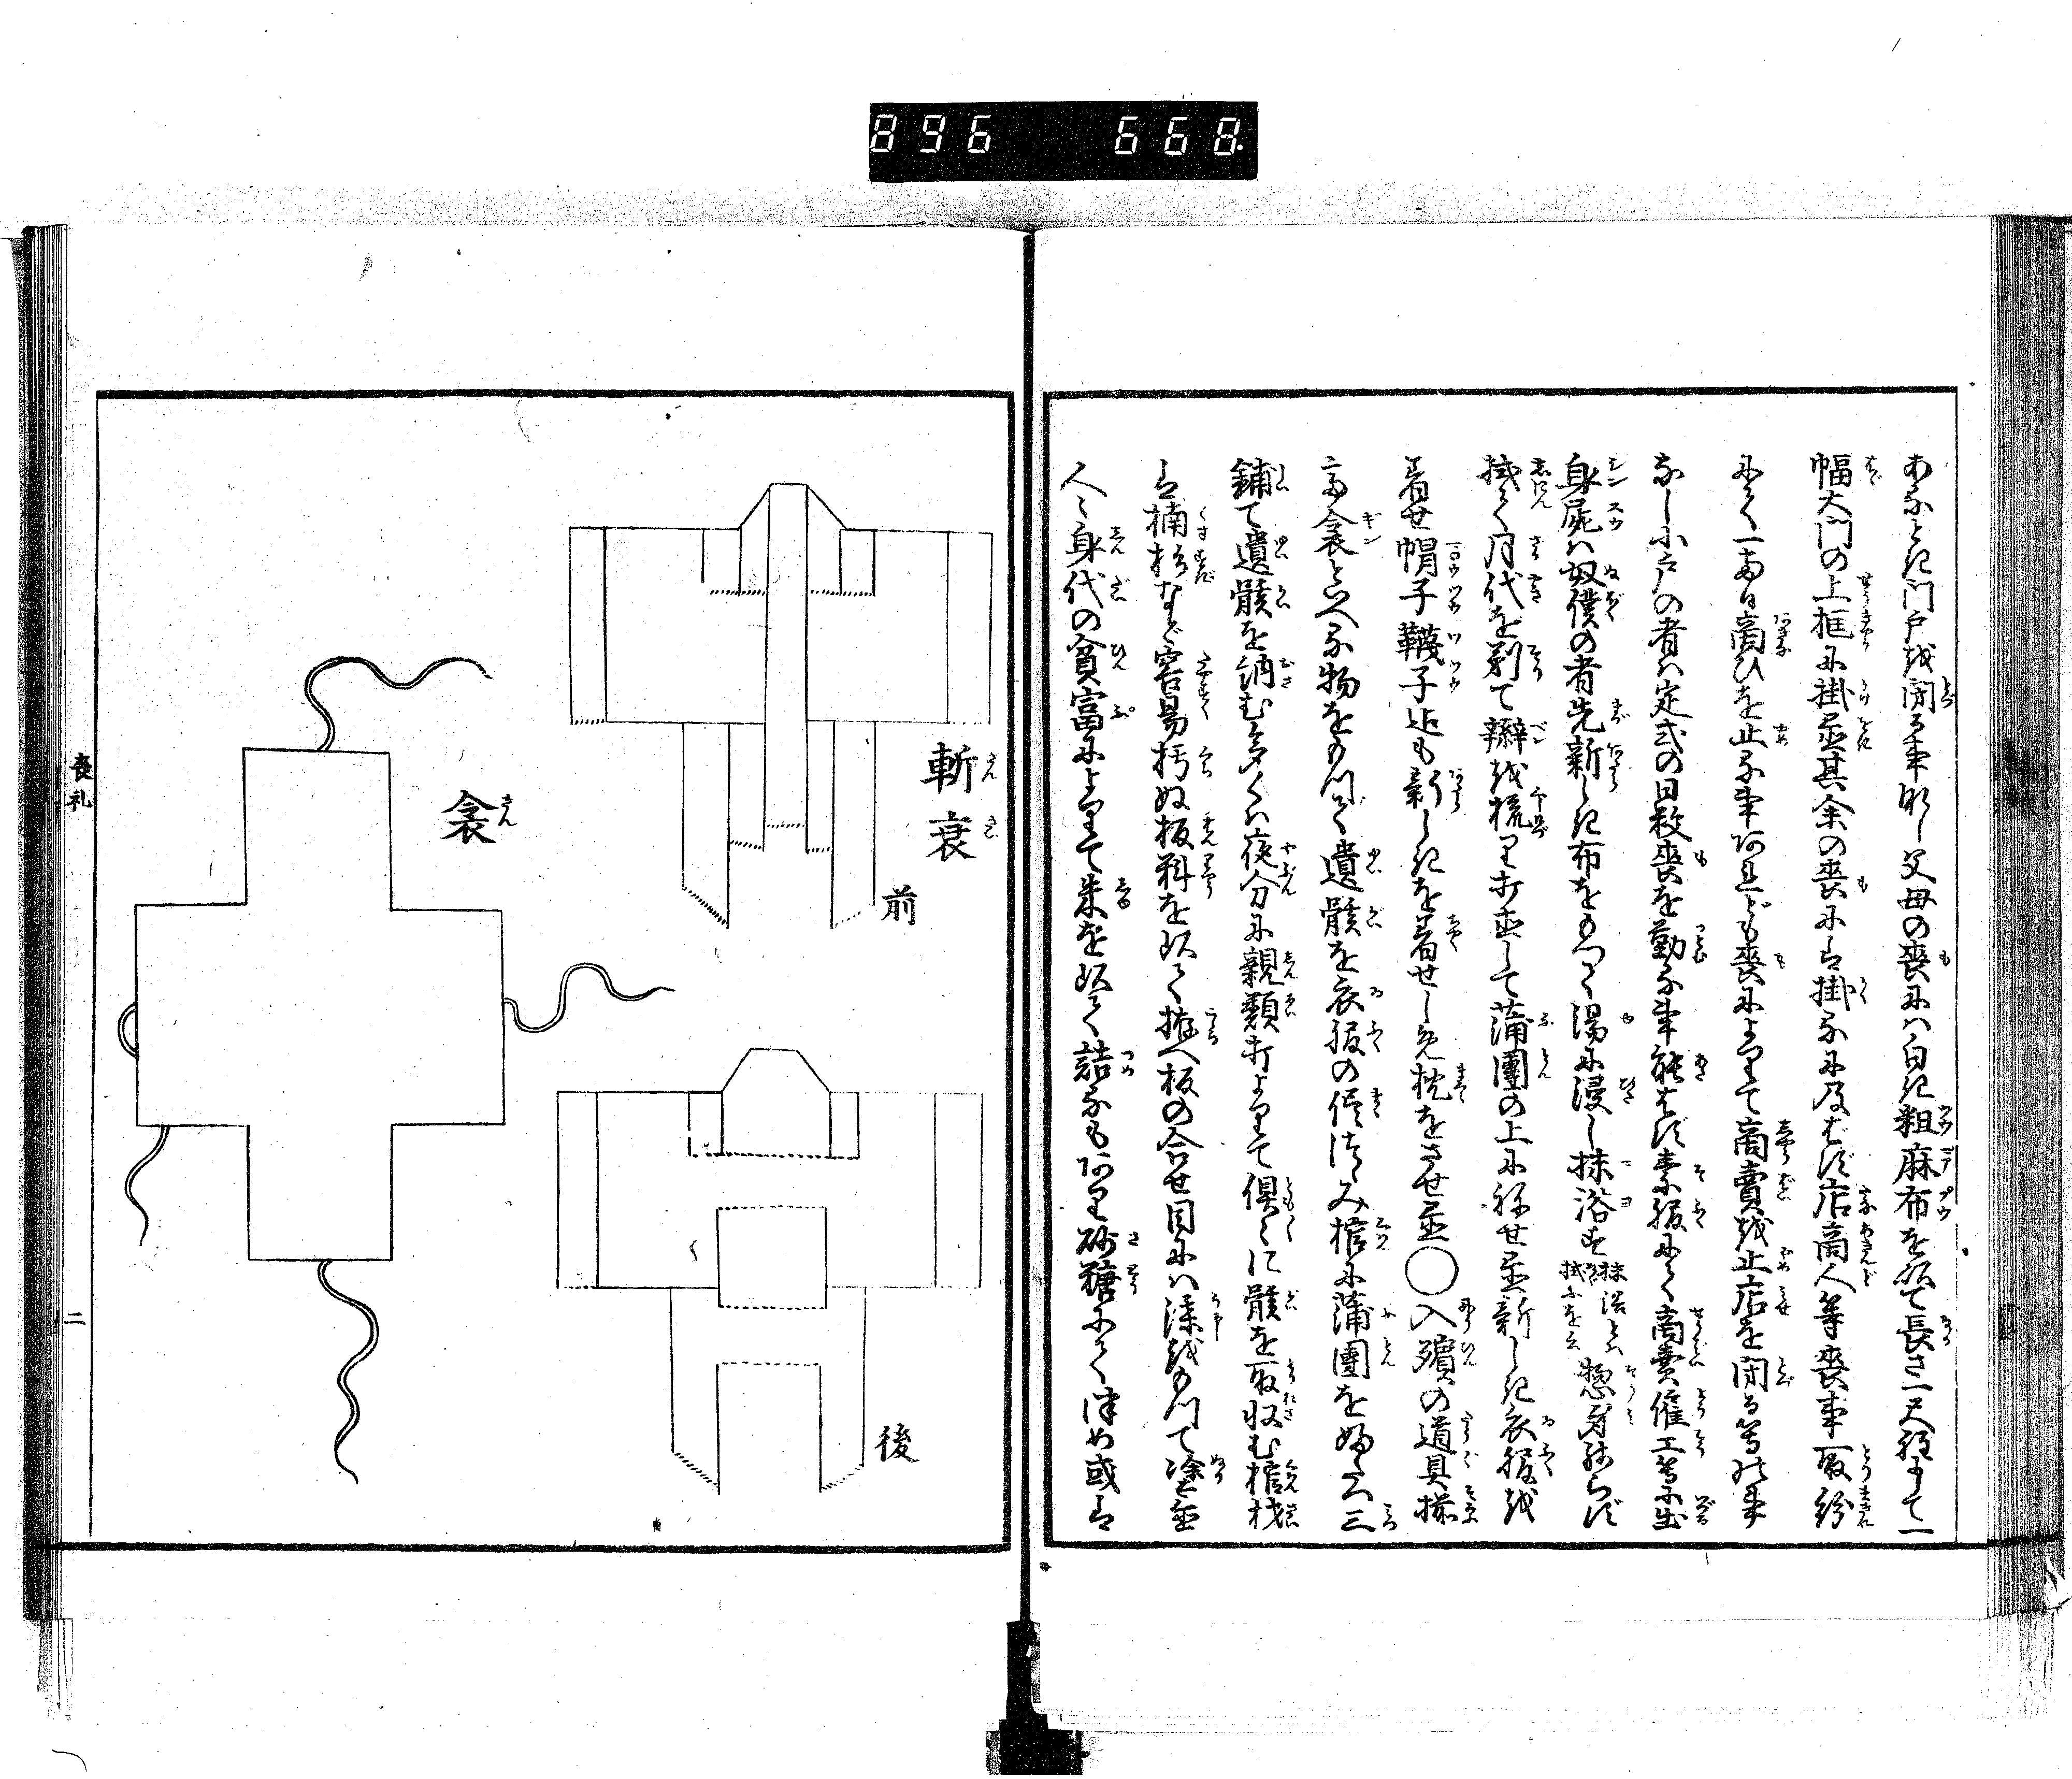 896 668
あるとき門戸越閉る事なし父母の喪にハ白き粗麻布を以て長さ一尺程にて一
幅大門の上框に掛置其余の喪にハ掛るに及ばず店商人等喪事取紛
にて一両日商ひを止る事阿れども喪によりて商賣越止店を閉る等の事
なし小戸の者ハ定式の日数喪を勤る事能はず素服にて商賣傭工等に出
身屍ハ奴僕の者先新しき布をもつて湯に浸し抹浴す 抹浴とハ拭ふを云 惣身残らず
拭て月代を剃て辮越梳り打直して蒲團の上に移せ置新しき衣服越
着せ帽子韈子迄も新しきを着せしめ枕をさせ置〇入殯の道具揃
言衾といへる物をもつて遺骸を衣服の儘つゝみ棺に蒲團を三
鋪て遺骸を納む多くハ夜分に親類打よりて倶々に骸を取収む棺材
ハ楠杉など容易朽ぬ板料を以て拵へ板の合せ目にハ漆越もつて塗置
人々身代の貧富によりて朱を以て詰るも阿り砂糖にて埋め或ハ
斬衰
前
衾
後
喪礼
二